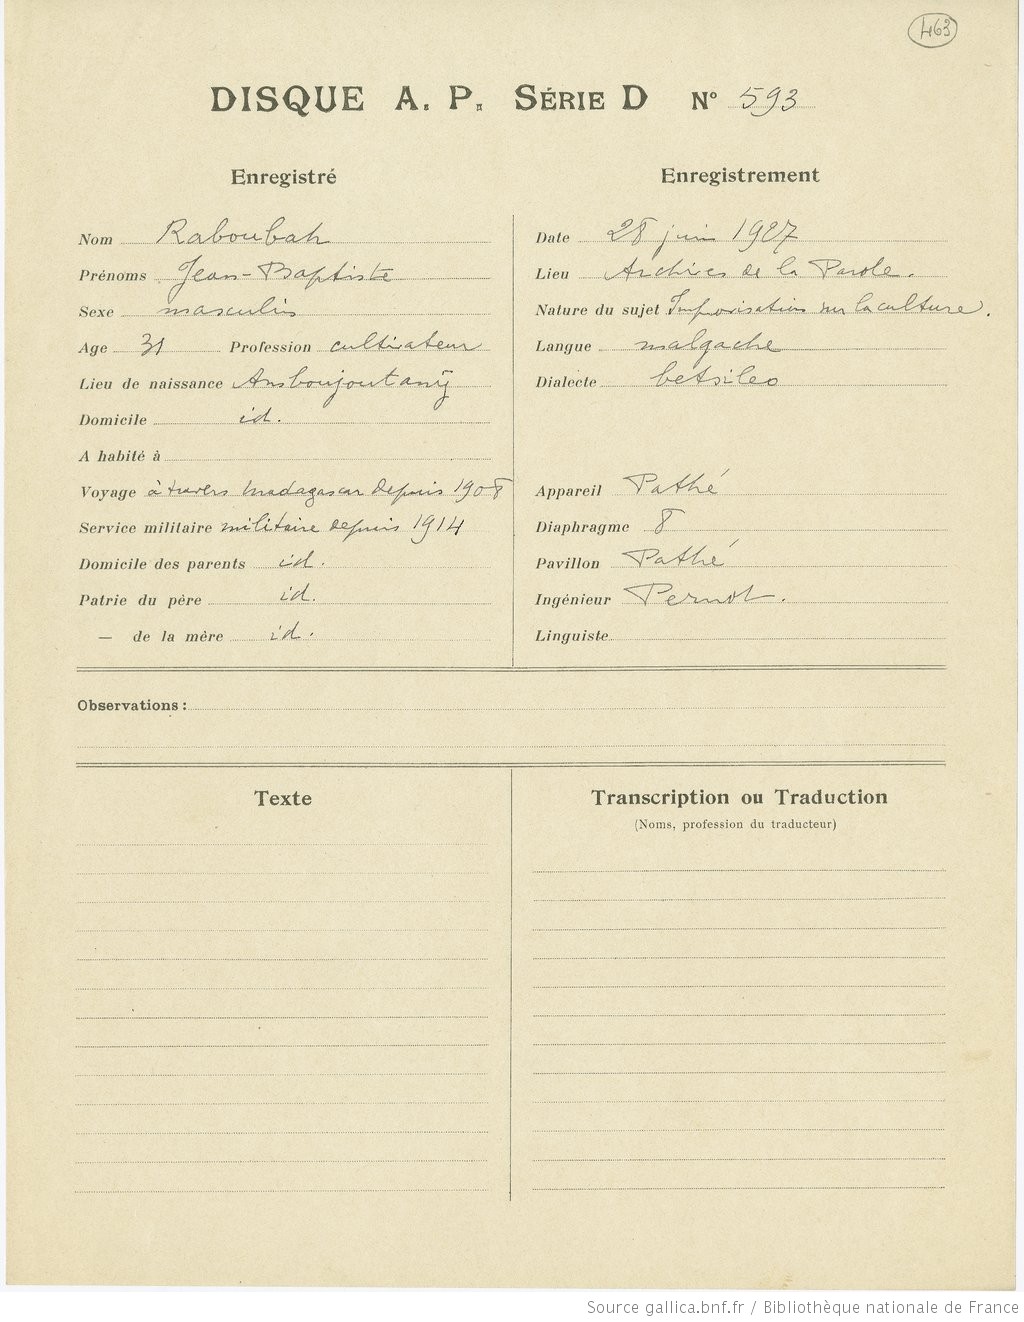 463
DISQUE A. P. SÉRIE D N° 593
Enregistré
Nom Raboubah
Prénoms Jean-Baptiste
Sexe masculin
Age 31 Profession cultivateur
Lieu de naissance
Domicile id.
A habité à
Voyage à travers Madagascar depuis 1908
Service militaire militaire depuis 1914
Domicile des parents id.
Patrie du père id.
— de la mère id.
Enregistrement
Date 28 juin 1927
Lieu Archives de la Parole.
Nature du sujet Improvisation sur la culture.
Langue malgache
Dialecte betsileo
Appareil Pathé
Diaphragme 8
Pavillon Pathé
Ingénieur Pernot.
Linguiste
Observations :
Texte
Transcription ou Traduction
(Noms, profession du traducteur)
Source gallica.bnf.fr / Bibliothèque nationale de France